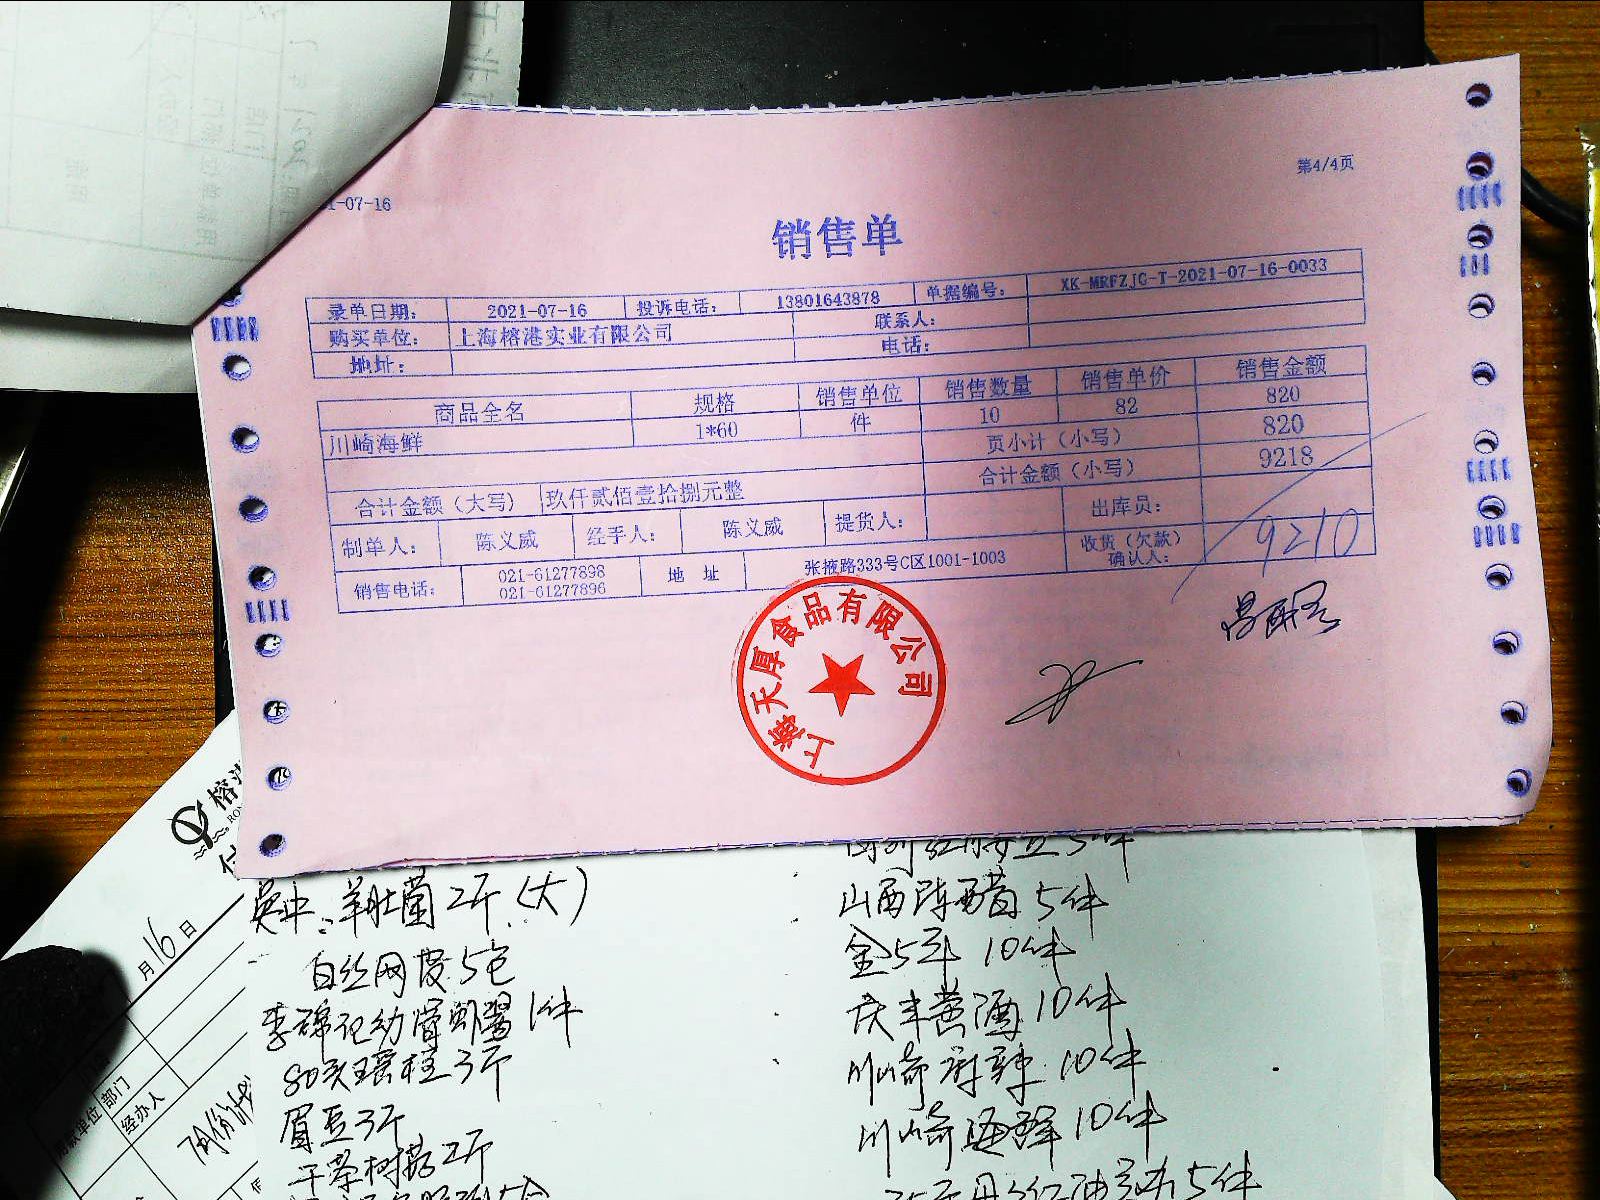 第4/4页
1-07-16
销售单
录单日期： 2021-07-16 投诉电话： 13801643878 单据编号： XK-MRFZJC-T-2021-07-16-0033
购买单位： 上海榕港实业有限公司 联系人：
地址： 电话：
商品全名 规格 销售单位 销售数量 销售单价 销售金额
川崎海鲜 1*60 件 10 82 820
页小计（小写） 820
合计金额（大写） 玖仟贰佰壹拾捌元整 合计金额（小写） 9218
制单人： 陈义威 经手人： 陈义威 提货人： 出库员：
9210
销售电话： 021-61277898 021-61277896 地址 张掖路333号C区1001-1003 收货（欠款）确认人：
上海天厚食品有限公司
榕
月16日
部门
经办人
羊肚菌2斤(大)
白丝网皮5包
李锦记幼滑虾酱1件
80头瑶柱3斤
眉豆3斤
干茶树菇2斤
山西陈醋5件
10件
黄酒10件
川崎麻辣10件
川崎海鲜10件
5件